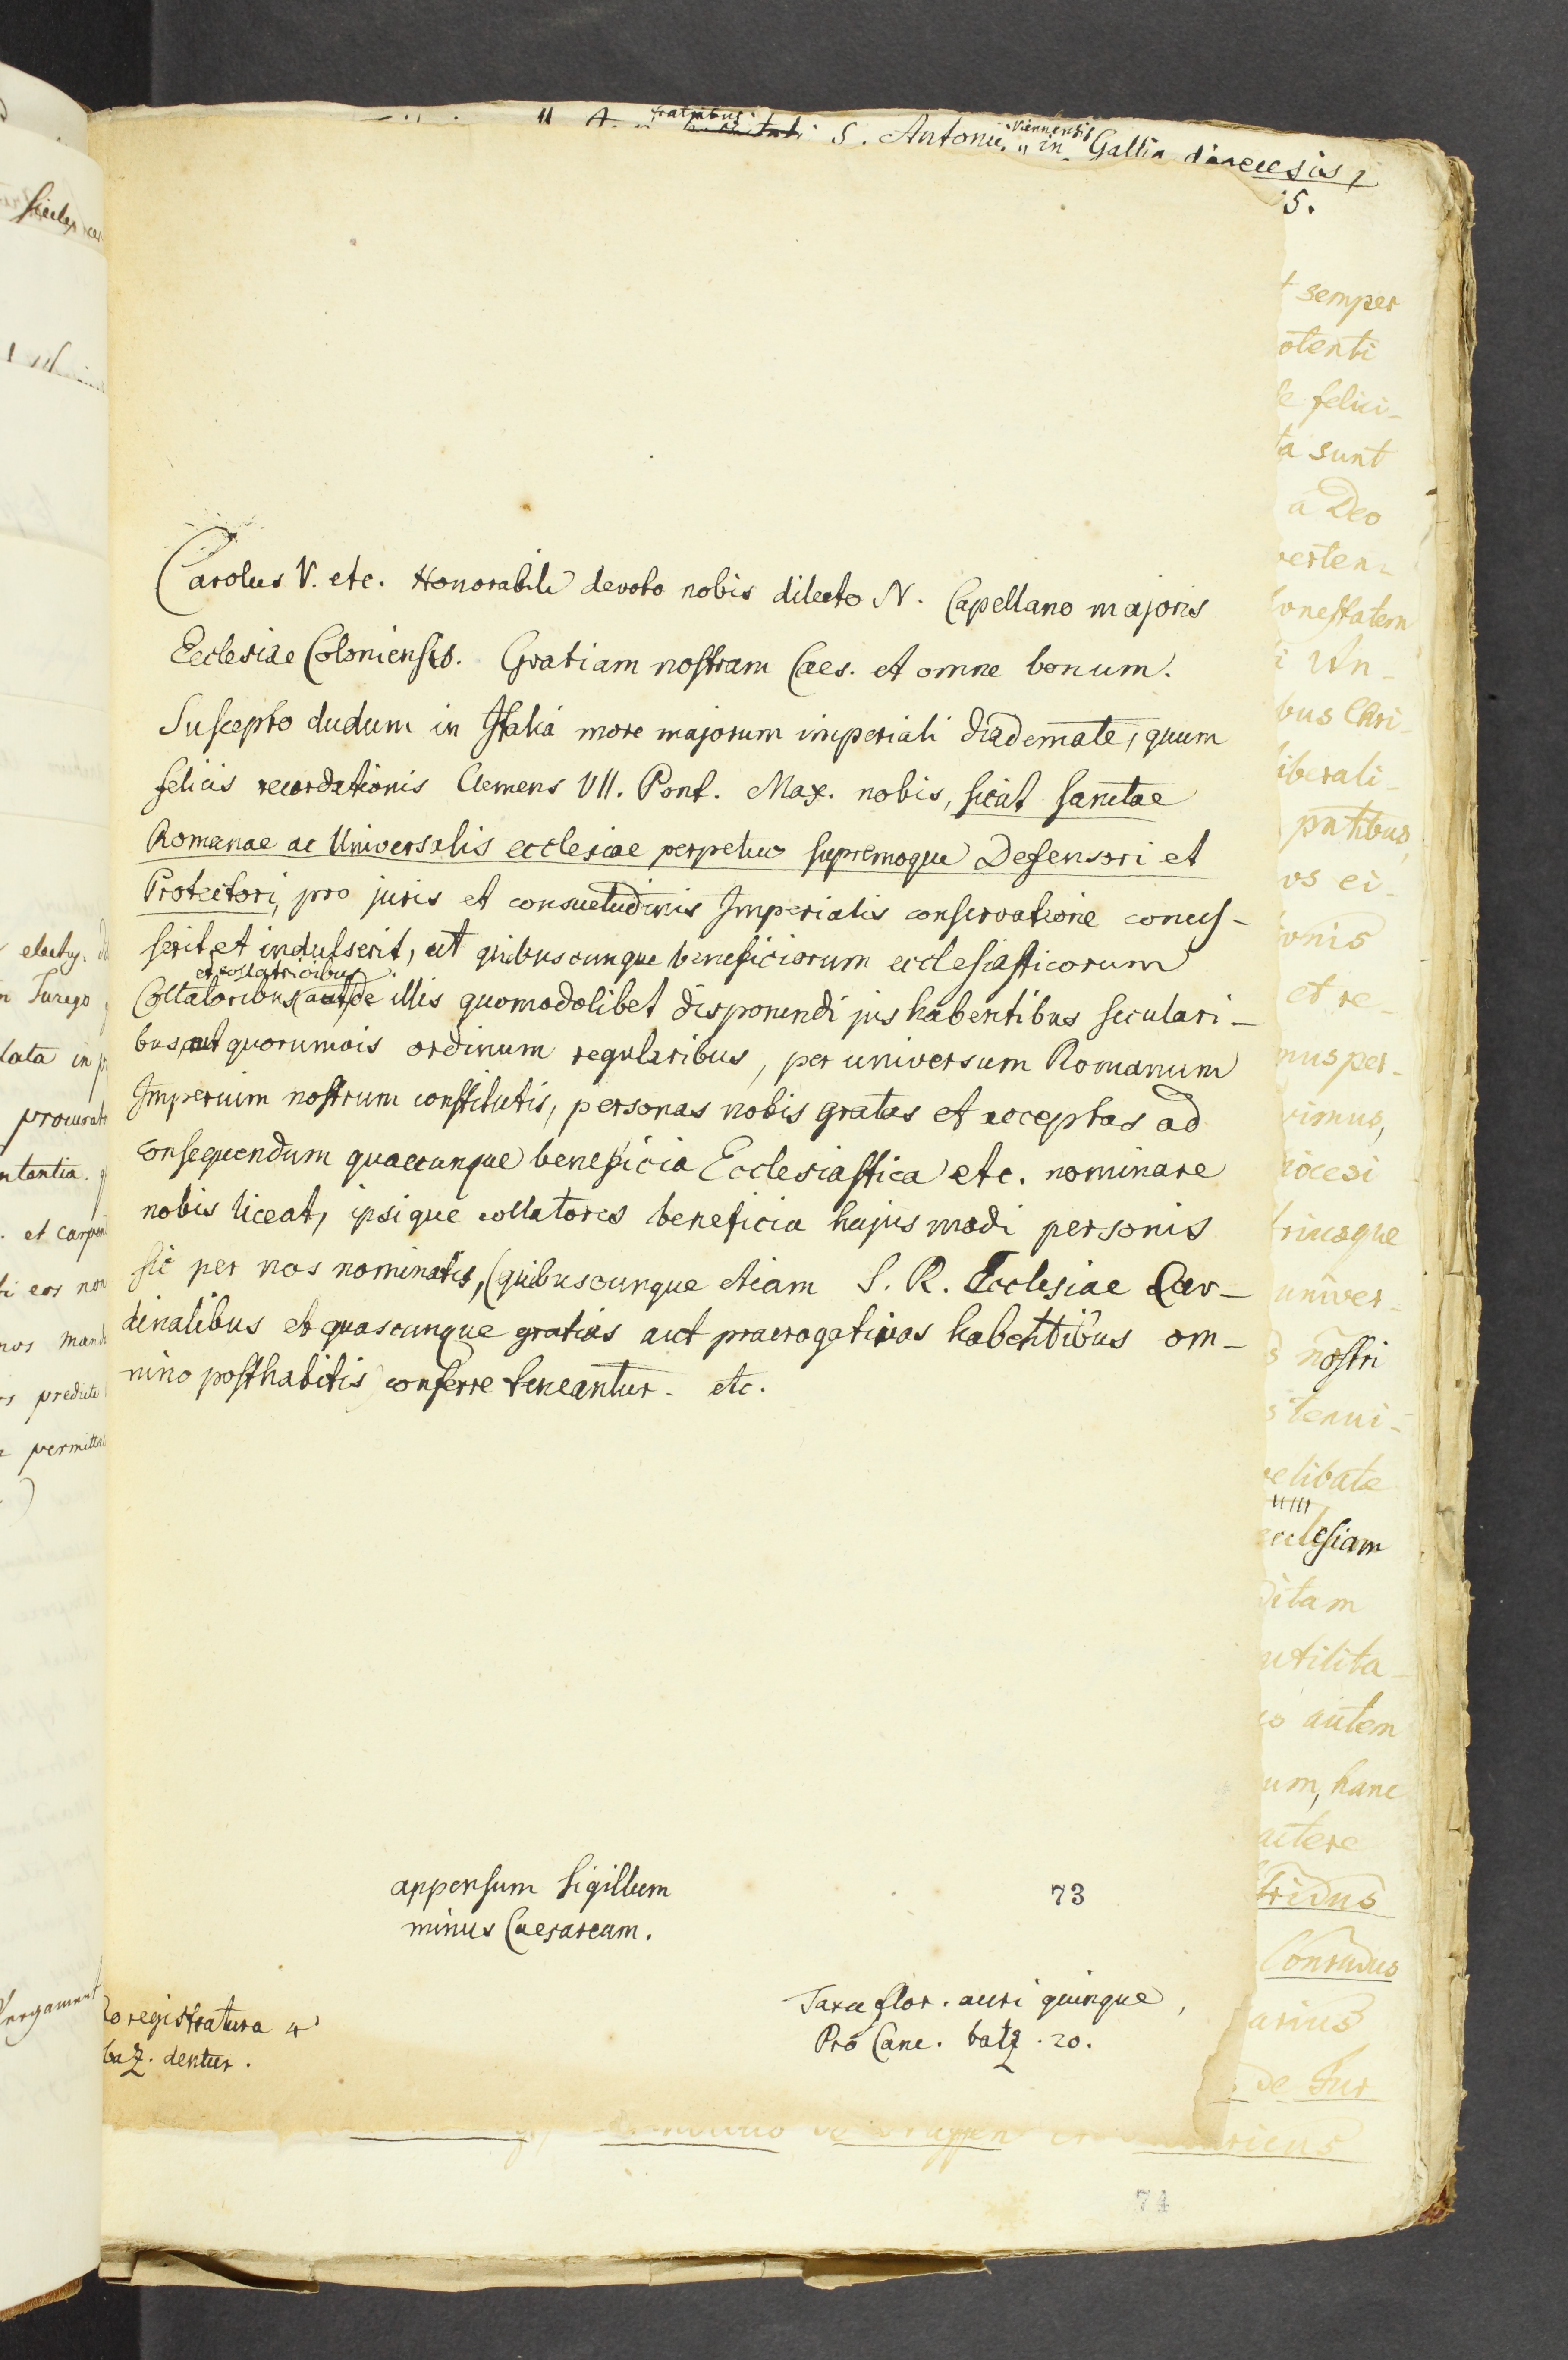 fratribus Viennensis
S. Antonii, in Gallia dioecesis,
5.
Carolus V. etc. Honorabili devoto nobis dilecto N. Capellano majoris
Ecclesiae Coloniensis. Gratiam nostram Caes. et omne bonum.
Suscepto dudum in Italia more majorum imperiali diademate, quum
felicis recordationis Clemens VII. Pont. Max. nobis, sicut sanctae
Romanae ac Universalis ecclesiae perpetuo supremoque Defensori et
Protectori, pro juris et consuetudinis Imperialis conservatione conces-
serit et indulserit, ut quibuscunque beneficiorum ecclesiasticorum
et collatricibus
Collatoribus aut de illis quomodolibet disponendi jus habentibus seculari-
bus, aut quorumvis ordinum regularibus, per universum Romanum
Imperium nostrum constitutis, personas nobis gratas et acceptas ad
consequendum quaecunque beneficia Ecclesiastica etc. nominare
nobis liceat, ipsique collatores beneficia hujusmodi personis
sic per nos nominatis, (quibuscunque etiam S. R. Ecclesiae Car-
dinalibus et quascunque gratias aut praerogativas habentibus om-
nino posthabitis) conferre teneantur. etc.
appensum sigillum
minus Caesareum.
73
Taxa flor. auri quinque,
Pro Canc. batz. 20.
Pro registratura 4
baz. dentur.
semper
otenti
felici-
ta sunt
a Deo
verten-
onestatem
Un-
bus Chri-
liberali
pntibus,
os ei-
ionis
et re-
mus per-
vimus,
iocesi
triusque
univer-
nostri
tenui-
velibate
ecclesiam
ditam
utilita-
autem
um, hanc
actere
fridus
Conradus
arius
de Tur
74
electus
n Turego
data in p
procurat
et carpen
ti eos non
nos mand
predicte
permitta
Pergament